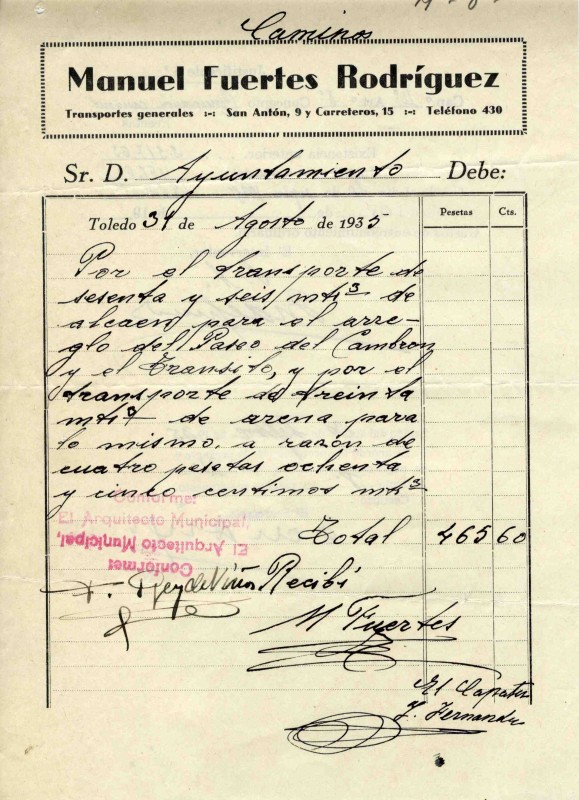 Caminos
Manuel Fuertes Rodríguez
Transportes generales :-: San Antón, 9 y Carreteros, 15 :-: Teléfono 430
Sr. D. Ayuntamiento Debe:
Toledo 31 de Agosto de 1935 Pesetas Cts.
Por el transporte de
sesenta y seis mts³ de
alcaen para el arre-
glo del Paseo del Cambron
y el Transito, y por el
transporte de treinta
mts³ de arena para
lo mismo, a razón de
cuatro pesetas ochenta
y cinco centimos mts³
Conforme:
El Arquitecto Municipal,
Total 465 60
El Arquitecto Municipal,
Conforme:
Recibí
M Fuertes
El Capataz
F. Fernandez